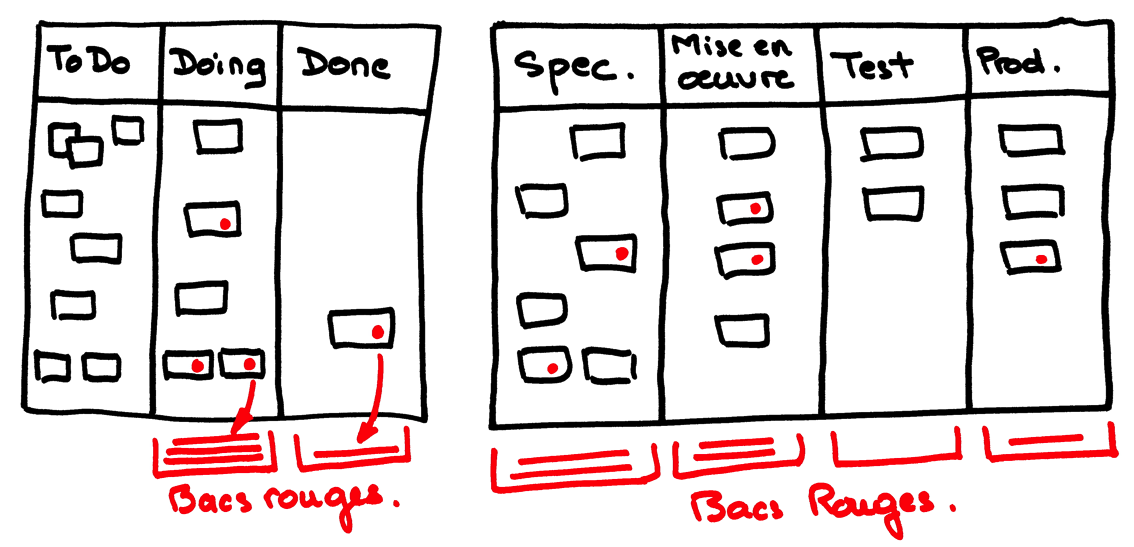 ToDo Doing Done
Bacs rouges.
Spec. Mise en œuvre Test Prod.
Bacs Rouges.